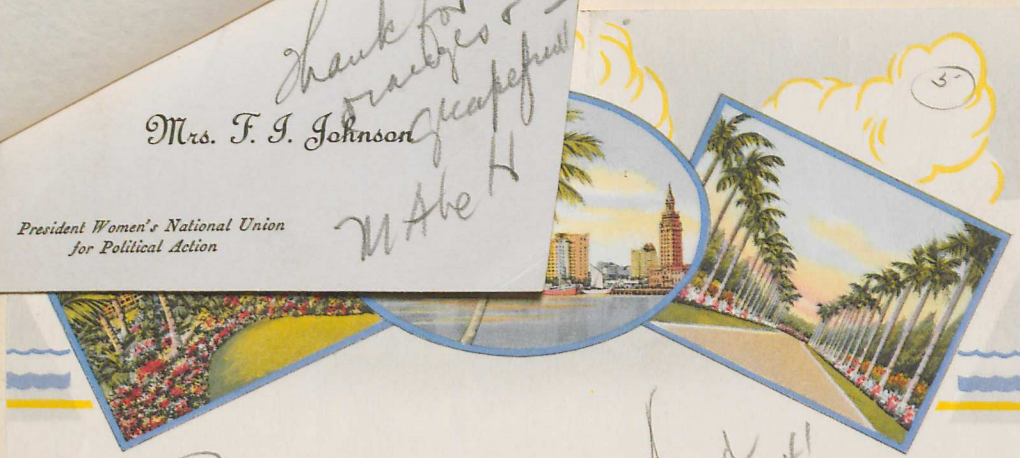 Thank for
oranges &
grapefruit
Mrs. F. I. Johnson
M Abe H
President Women's National Union
for Political Action
5